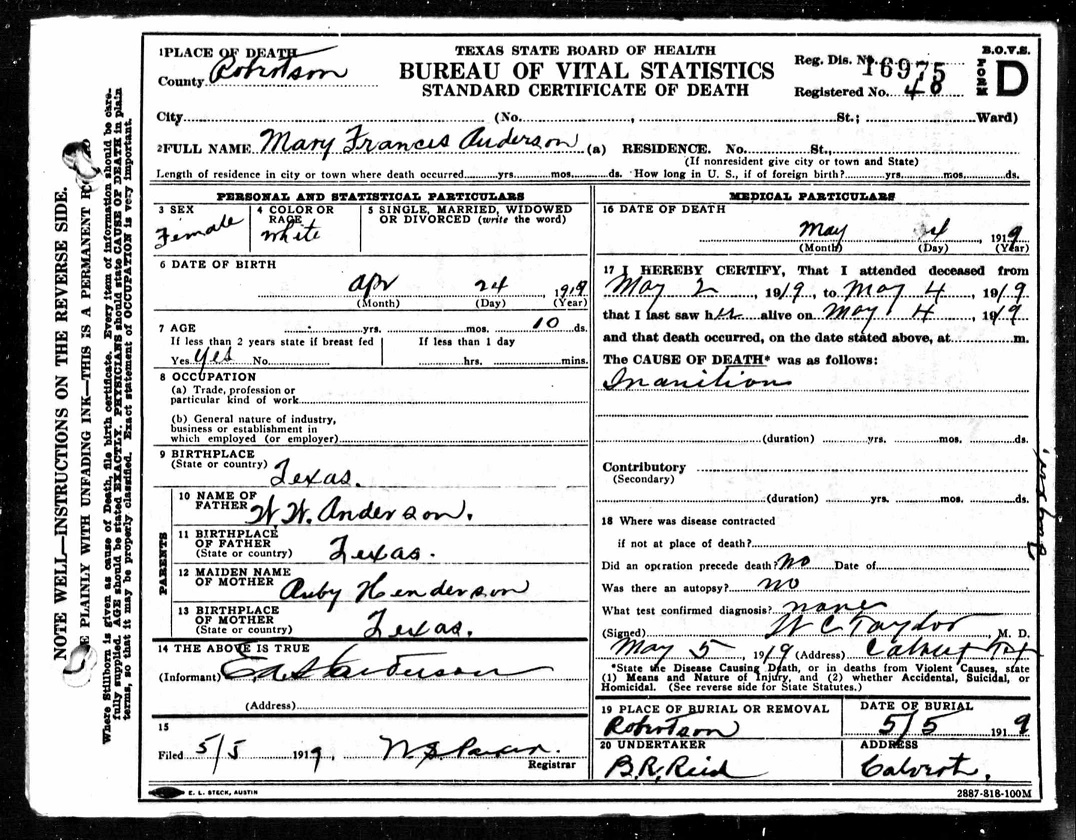 TEXAS STATE BOARD OF HEALTH
BUREAU OF VITAL STATISTICS
STANDARD CERTIFICATE OF DEATH
1 PLACE OF DEATH
County Robertson
Reg. Dis. No. 16975
Registered No. 48
B.O.V.S.
FORM D
City (No. , St.; Ward)
2 FULL NAME Mary Francis Anderson (a) RESIDENCE. No. St.,
(If nonresident give city or town and State)
Length of residence in city or town where death occurred yrs. mos. ds. How long in U. S., if of foreign birth? yrs. mos. ds.
PERSONAL AND STATISTICAL PARTICULARS
3 SEX
Female
4 COLOR OR RACE
White
5 SINGLE, MARRIED, WIDOWED
OR DIVORCED (write the word)
6 DATE OF BIRTH
Apr 24, 1919
(Month) (Day) (Year)
7 AGE yrs. mos. 10 ds.
If less than 2 years state if breast fed
Yes yes No
If less than 1 day
hrs. mins.
8 OCCUPATION
(a) Trade, profession or
particular kind of work
(b) General nature of industry,
business or establishment in
which employed (or employer)
9 BIRTHPLACE
(State or country) Texas.
PARENTS
10 NAME OF
FATHER W. W. Anderson.
11 BIRTHPLACE
OF FATHER
(State or country) Texas.
12 MAIDEN NAME
OF MOTHER Ruby Henderson
13 BIRTHPLACE
OF MOTHER
(State or country) Texas.
14 THE ABOVE IS TRUE
(Informant)
(Address)
15
Filed 5/5 1919,
Registrar
MEDICAL PARTICULARS
16 DATE OF DEATH
May 4, 1919
(Month) (Day) (Year)
17 I HEREBY CERTIFY, That I attended deceased from
May 2, 1919, to May 4, 1919
that I last saw her alive on May 4, 1919
and that death occurred, on the date stated above, at m.
The CAUSE OF DEATH* was as follows:
Inanition
(duration) yrs. mos. ds.
Contributory
(Secondary)
(duration) yrs. mos. ds.
18 Where was disease contracted
if not at place of death?
Did an operation precede death? No Date of
Was there an autopsy? No
What test confirmed diagnosis? none
(Signed) W C Taylor, M. D.
May 5, 1919 (Address) Calvert Tex
*State the Disease Causing Death, or in deaths from Violent Causes, state
(1) Means and Nature of Injury, and (2) whether Accidental, Suicidal, or
Homicidal. (See reverse side for State Statutes.)
19 PLACE OF BURIAL OR REMOVAL
Robertson
DATE OF BURIAL
5/5 1919
20 UNDERTAKER
B. R. Reid
ADDRESS
Calvert.
E. L. STECK, AUSTIN
2887-818-100M
NOTE WELL—INSTRUCTIONS ON THE REVERSE SIDE.
PLAINLY WITH UNFADING INK—THIS IS A PERMANENT
Where Stillborn is given as cause of Death, file birth certificate. Every item of information should be care-
fully supplied. AGE should be stated EXACTLY. PHYSICIANS should state CAUSE OF DEATH in plain
terms, so that it may be properly classified. Exact statement of OCCUPATION is very important.